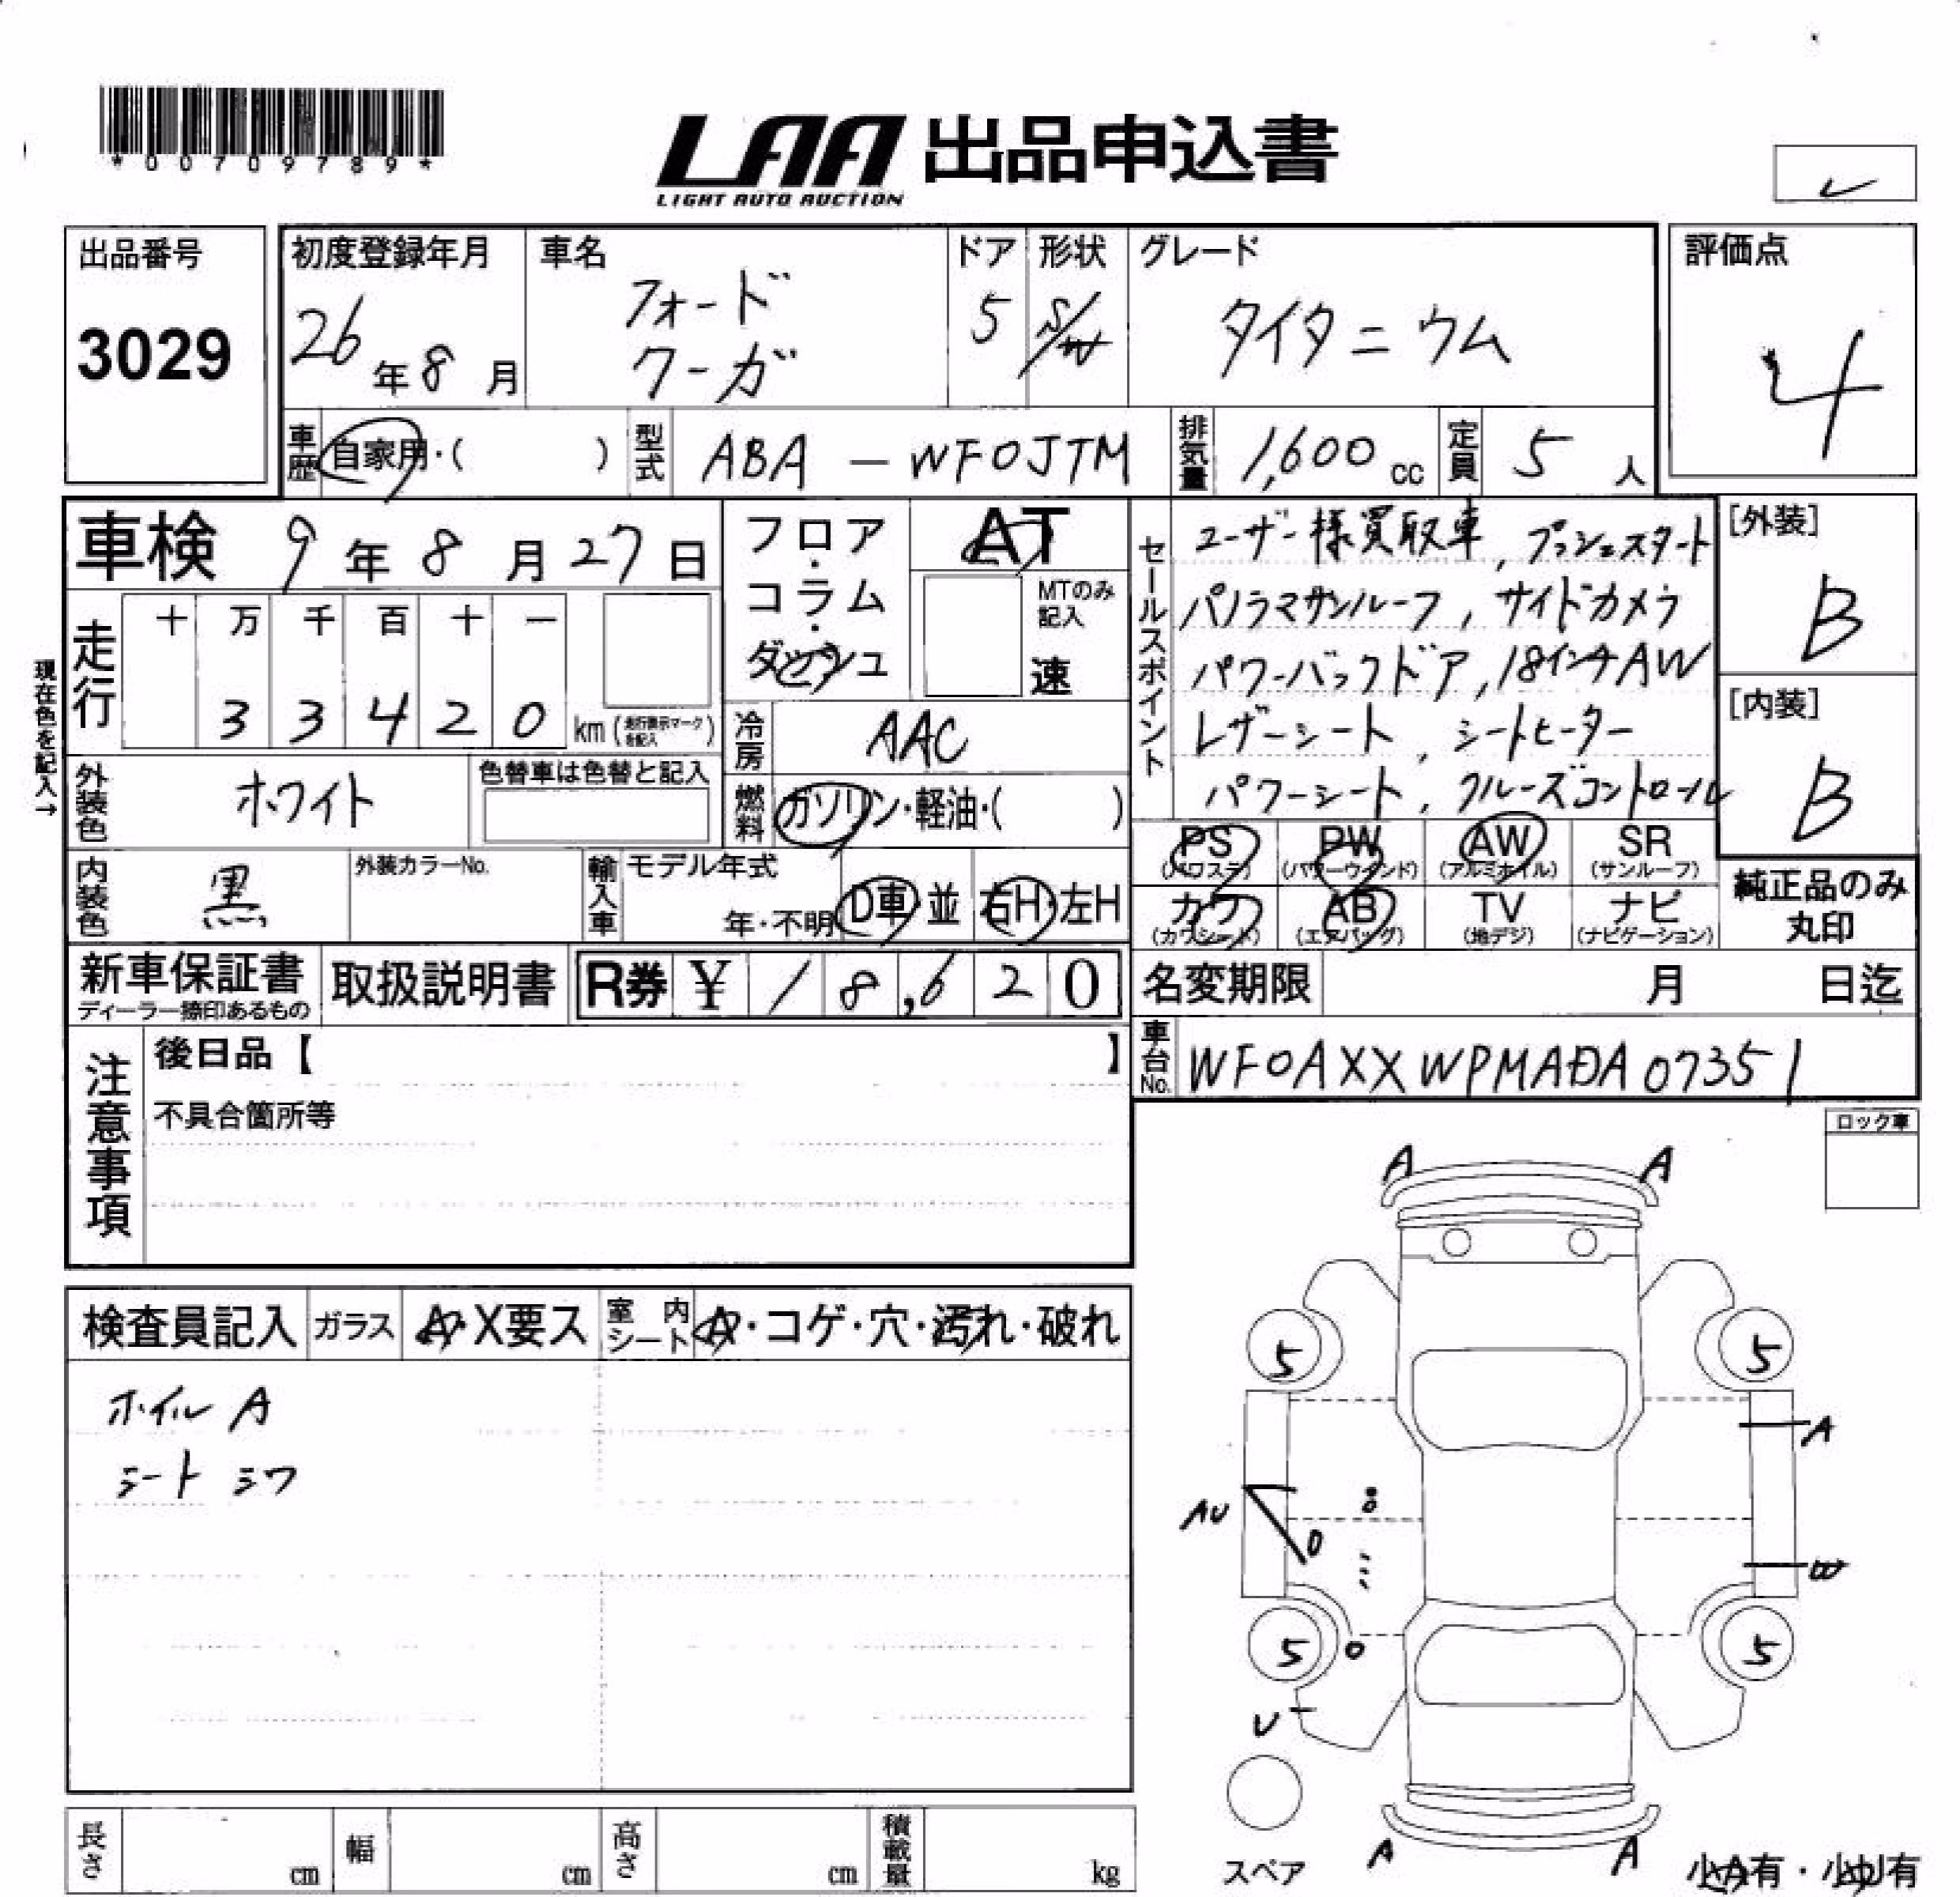 *00709789*
LAA 出品申込書
LIGHT AUTO AUCTION
レ
出品番号
3029
初度登録年月
26年8月
車名
フォード
クーガ
ドア
5
形状
S/W
グレード
タイタニウム
評価点
4
車歴
自家用・( )
型式
ABA - WF0JTM
排気量
1,600 cc
定員
5 人
車検 9年8月27日
フロア・コラム・ダッシュ
AT
MTのみ記入
速
走行
十 万 千 百 十 一
3 3 4 2 0 km (走行表示マークを記入)
現在色を記入→
冷房
AAC
外装色
ホワイト
色替車は色替と記入
燃料
ガソリン・軽油・( )
内装色
黒
外装カラーNo.
輸入車
モデル年式
年・不明
D車・並
右H・左H
セールスポイント
ユーザー様買取車, プッシュスタート
パノラマサンルーフ, サイドカメラ
パワーバックドア, 18インチAW
レザーシート, シートヒーター
パワーシート, クルーズコントロール
[外装]
B
[内装]
B
PS (パワステ)
PW (パワーウインド)
AW (アルミホイル)
SR (サンルーフ)
カワ (カワシート)
AB (エアバッグ)
TV (地デジ)
ナビ (ナビゲーション)
純正品のみ
丸印
新車保証書
ディーラー捺印あるもの
取扱説明書
R券 ¥ 18,620
名変期限 月 日迄
車台No.
WF0AXXWPMADA07351
注意事項
後日品【 】
不具合箇所等
ロック車
検査員記入
ガラス
A・X要ス
室内シート
A・コゲ・穴・汚れ・破れ
ホイル A
シート シワ
A
A
5
5
A
AU
W
5
5
U
A
A
スペア
小A有・小U有
長さ cm
幅 cm
高さ cm
積載量 kg